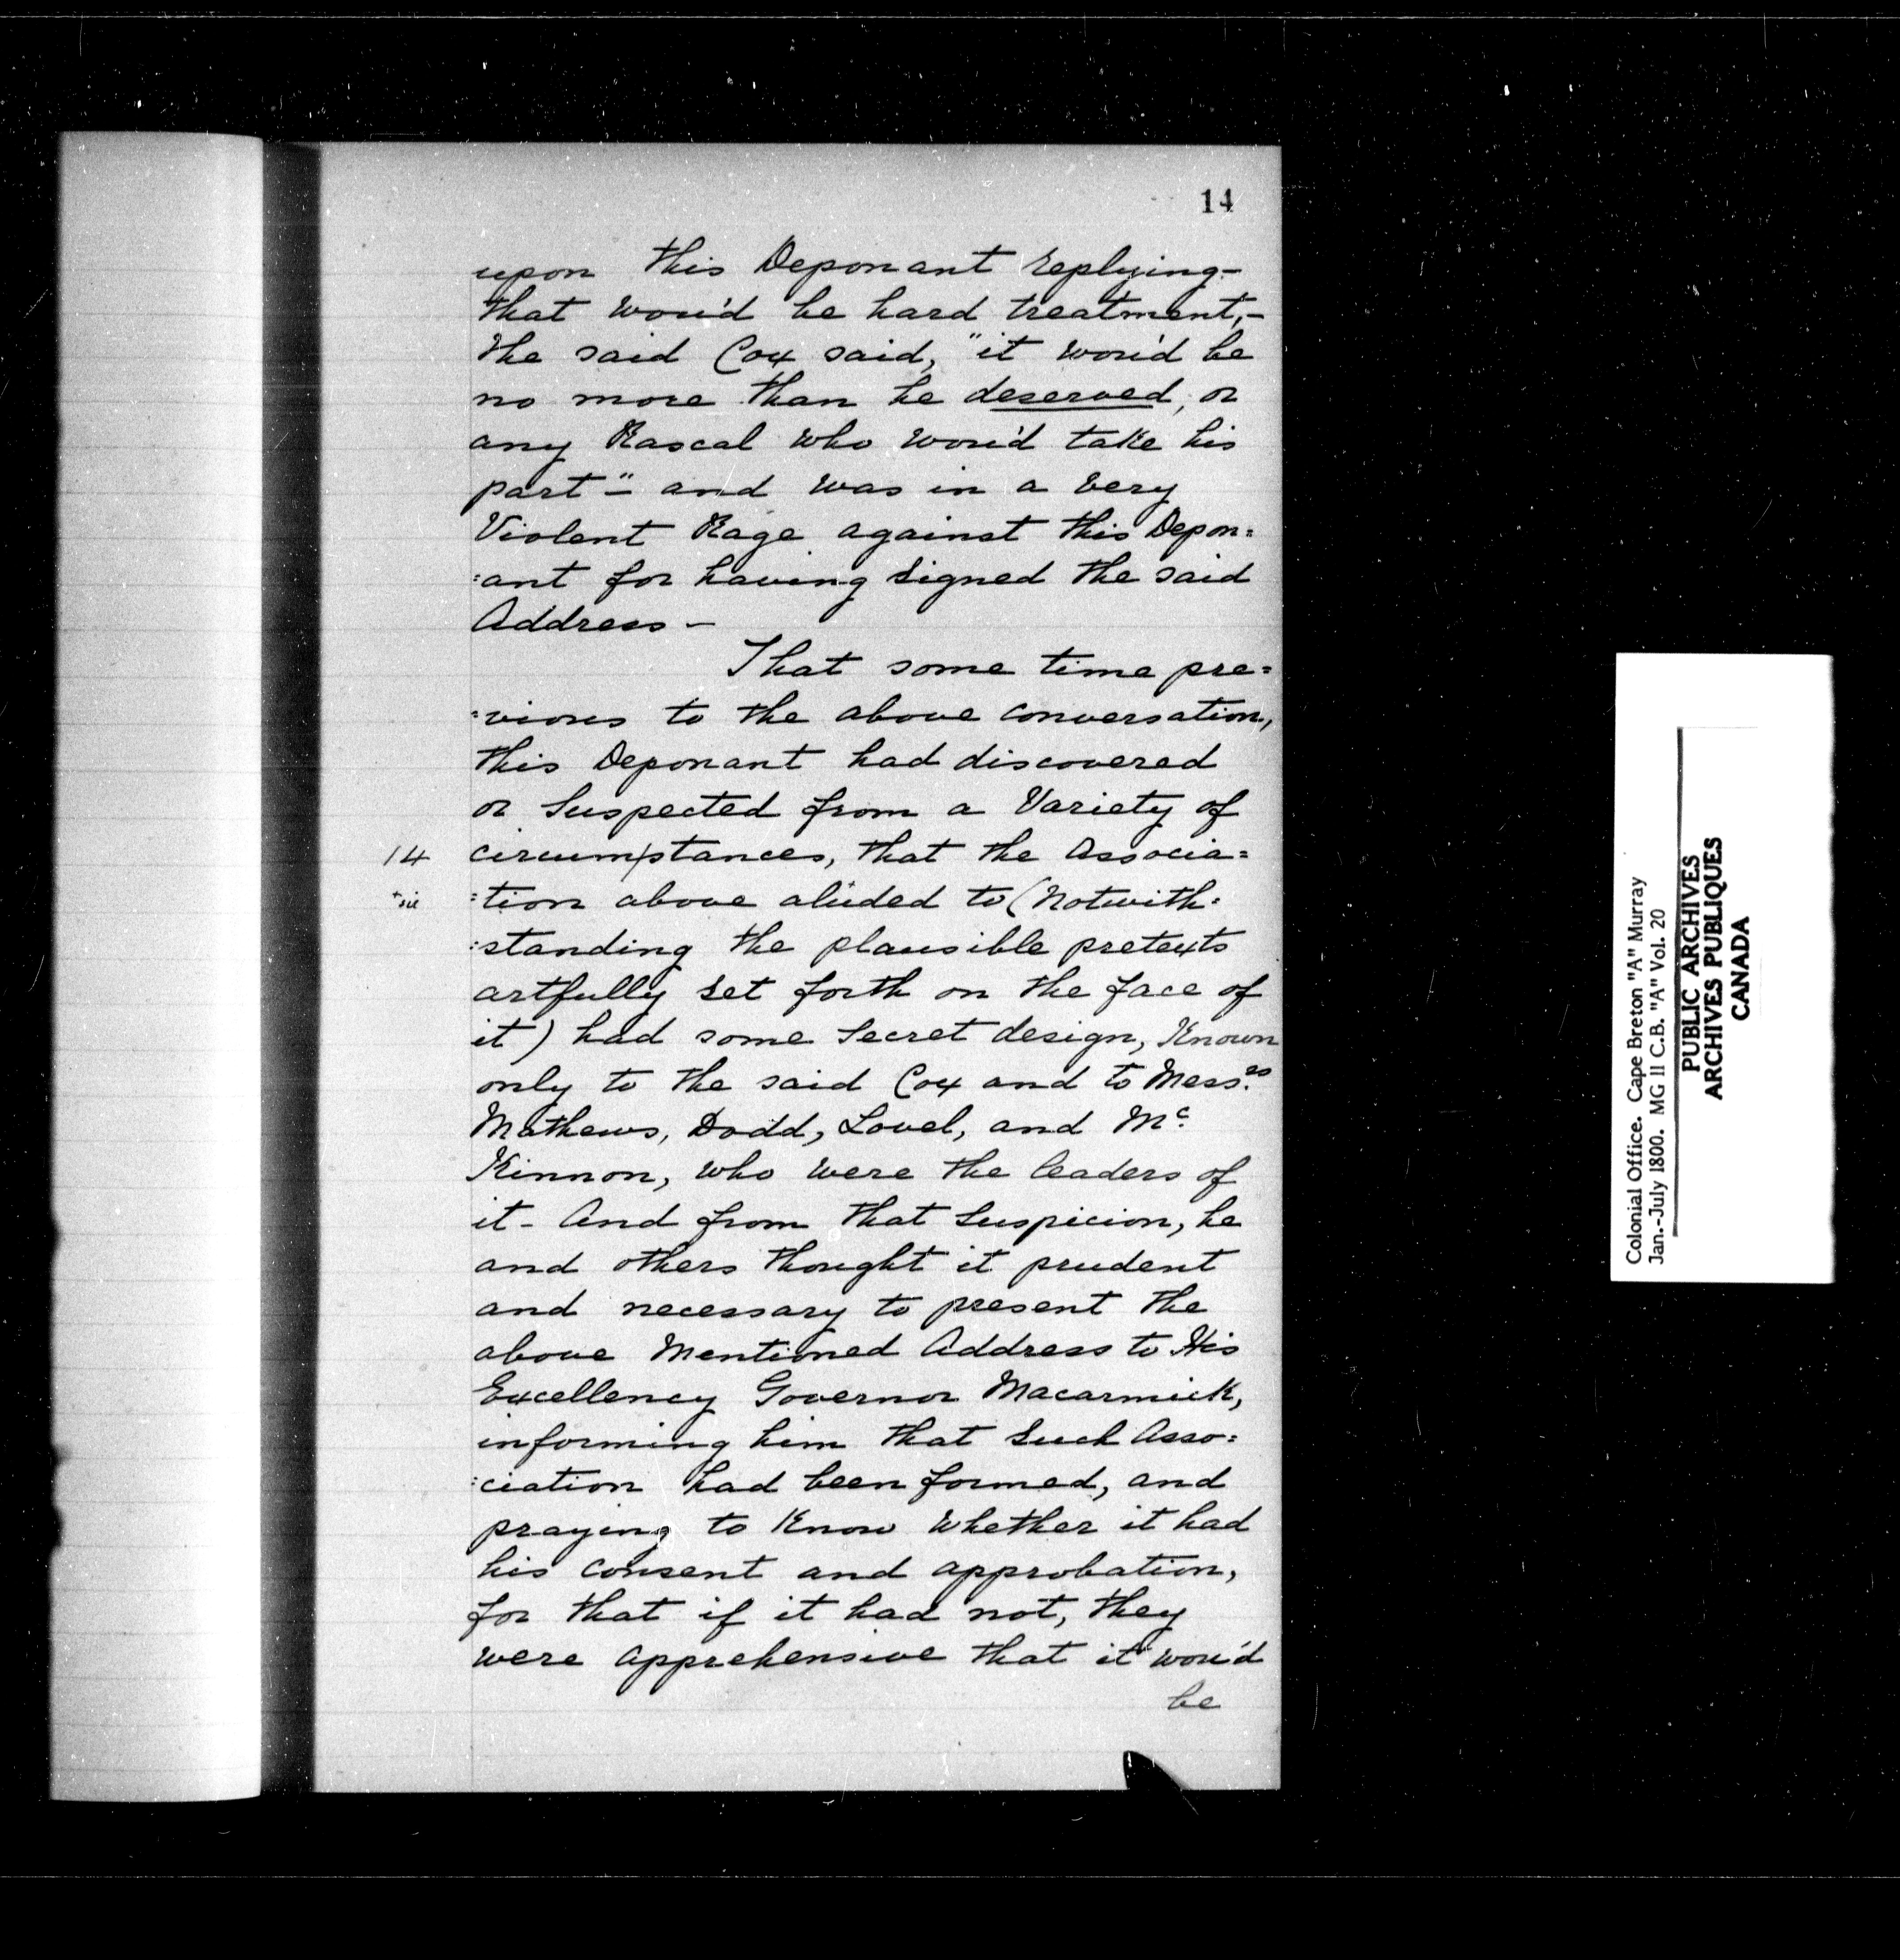 14
upon this Deponant replying-
that wou'd be hard treatment,-
the said Cox said, "it wou'd be
no more than he deserved, or
any Rascal who wou'd take his
part"- and was in a very
Violent Rage against this Depon=
:ant for having signed the said
Address-
That some time pre=
:vious to the above conversation,
this Deponant had discovered
or Suspected from a Variety of
14 circum/stances, that the Associa=
+sic :tion above aluded to (Notwith:
:standing the plausible pretexts
artfully set forth on the face of
it) had some Secret design, Known
only to the said Cox and to Mess.rs
Mathews, Dodd, Lovel, and Mc.
Kinnon, who were the leaders of
it- And from that Suspicion, he
and others thought it prudent
and necessary to present the
above Mentioned Address to His
Excellency Governor Macarmick,
informing him that Such Asso:
:ciation had been formed, and
praying to Know whether it had
his consent and approbation,
for that if it had not, they
were apprehensive that it wou'd
be
Colonial Office. Cape Breton "A" Murray
Jan.-July 1800. MG 11 C.B. "A" Vol. 20
PUBLIC ARCHIVES
ARCHIVES PUBLIQUES
CANADA